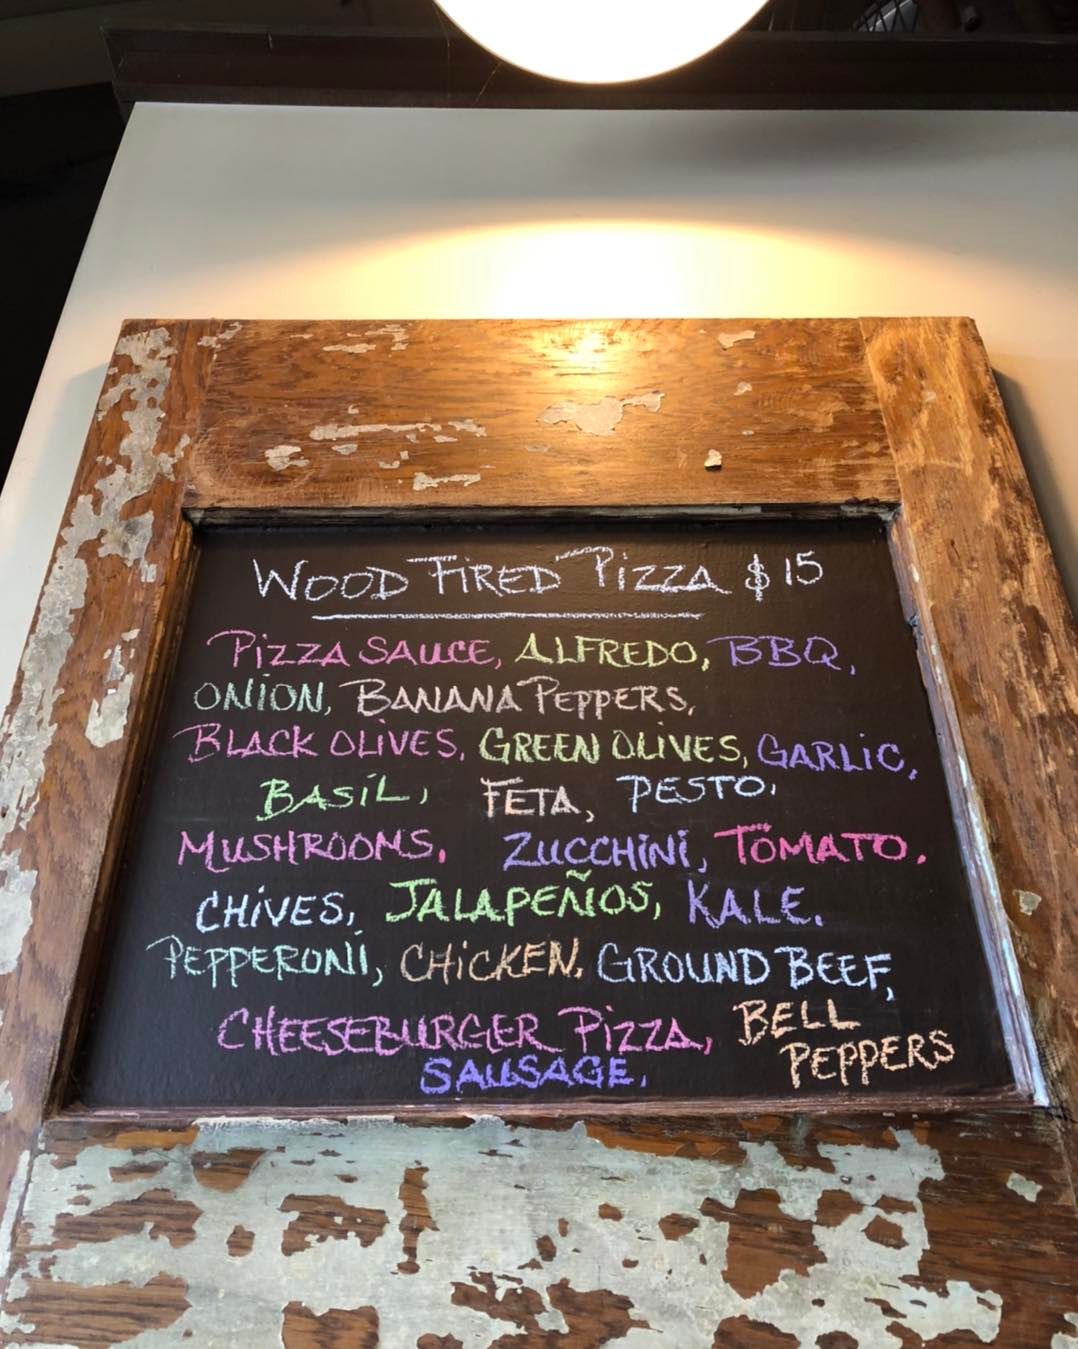 WOOD FIRED PIZZA $15
PIZZA SAUCE, ALFREDO, BBQ,
ONION, BANANA PEPPERS,
BLACK OLIVES, GREEN OLIVES, GARLIC,
BASIL, FETA, PESTO.
MUSHROOMS. ZUCCHINI, TOMATO.
CHIVES, JALAPEÑOS, KALE.
PEPPERONI, CHICKEN. GROUND BEEF,
CHEESEBURGER PIZZA, BELL
PEPPERS
SAUSAGE.